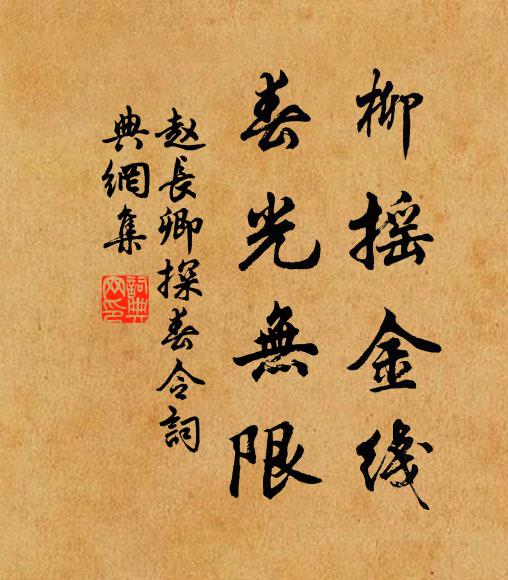 柳摇金线
春光無限
赵長卿探春令詞
典網集
詞典
网印